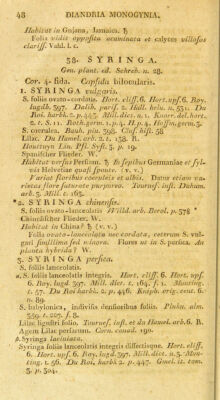 48 DIANDRIA MONOGYNIA.
Habitat in Gujana, Jamaica. ♄
Folia vidit opposita acuminata et calyces villosos
clariss. Vahl. l. c.
38. SYRINGA.
Gen. plant. ed. Schreb. n. 28.
Cor. 4-fida. Capsula bilocularis.
1. SYRINGA vulgaris.
S. foliis ovato-cordatis. Hort. cliff. 6. Hort. upf. 6. Roy.
lugdb. 397. Dalib. paris. 2. Hall. helv. n. 531. Du
Roi. harbk. 2. p. 443. Mill. dict. n. 1. Knorr. del. hort.
2. t. S. 11. Roth. germ. 1. p. 4. II. p. 4. Hoffm. germ. 3.
S. coerulea. Bauh. pin. 398. Cluf. hist. 58
Lilac. Du Hamel. arb. 2. t. 138.
Houttuyn Lin. Pfl. Syst. 3. p. 19.
Spanischer Flieder. W.
Habitat versus Persiam. ♄ In sepibus Germaniae et syl-
vis Helvetiae quasi sponte. (v. v.)
Variat floribus coeruleis et albis. Datur etiam va-
rietas flore saturate purpureo. Tournef. inst. Duham.
arb. 3. Mill. c. 163.
* 2. SYRINGA chinensis.
S. foliis ovato-lanceolatis Willd. arb. Berol. p. 378 *
Chinesischer Flieder. W.
Habitat in China? ♄ (v. v.)
Folia ovato-lanceolata nec cordata, ceterum S. vul-
gari simillima sed minora. Flores ut in S. persica. An
planta hybrida? W.
3. SYRINGA persica.
S. foliis lanceolatis.
α. S. foliis lanceolatis integris. Hort. cliff. 6. Hort. upf.
6. Roy. lugd. 397. Mill. dict. t. 164. f. 1. Munting.
t. 57. Du Roi harbk. 2. p. 446. Kniph. orig. cent. 6.
n. 89.
S. babylonica, indivisis densioribus foliis. Pluk. alm.
359. t. 227. f. 8.
Lilac ligustri folio. Tournef. inst. et du Hamel. arb. 6. B.
Agem Lilac persarum. Corn. canad. 190.
β Syringa laciniata.
Syringa foliis lanceolatis integris dissectisque. Hort. cliff.
6. Hort. upf. 6. Roy. lugd. 397. Mill. dict. n. 3. Mun-
ting. t. 56. Du Roi harbk. 2. p. 447. Gmel. it. tom.
3. p. 304.